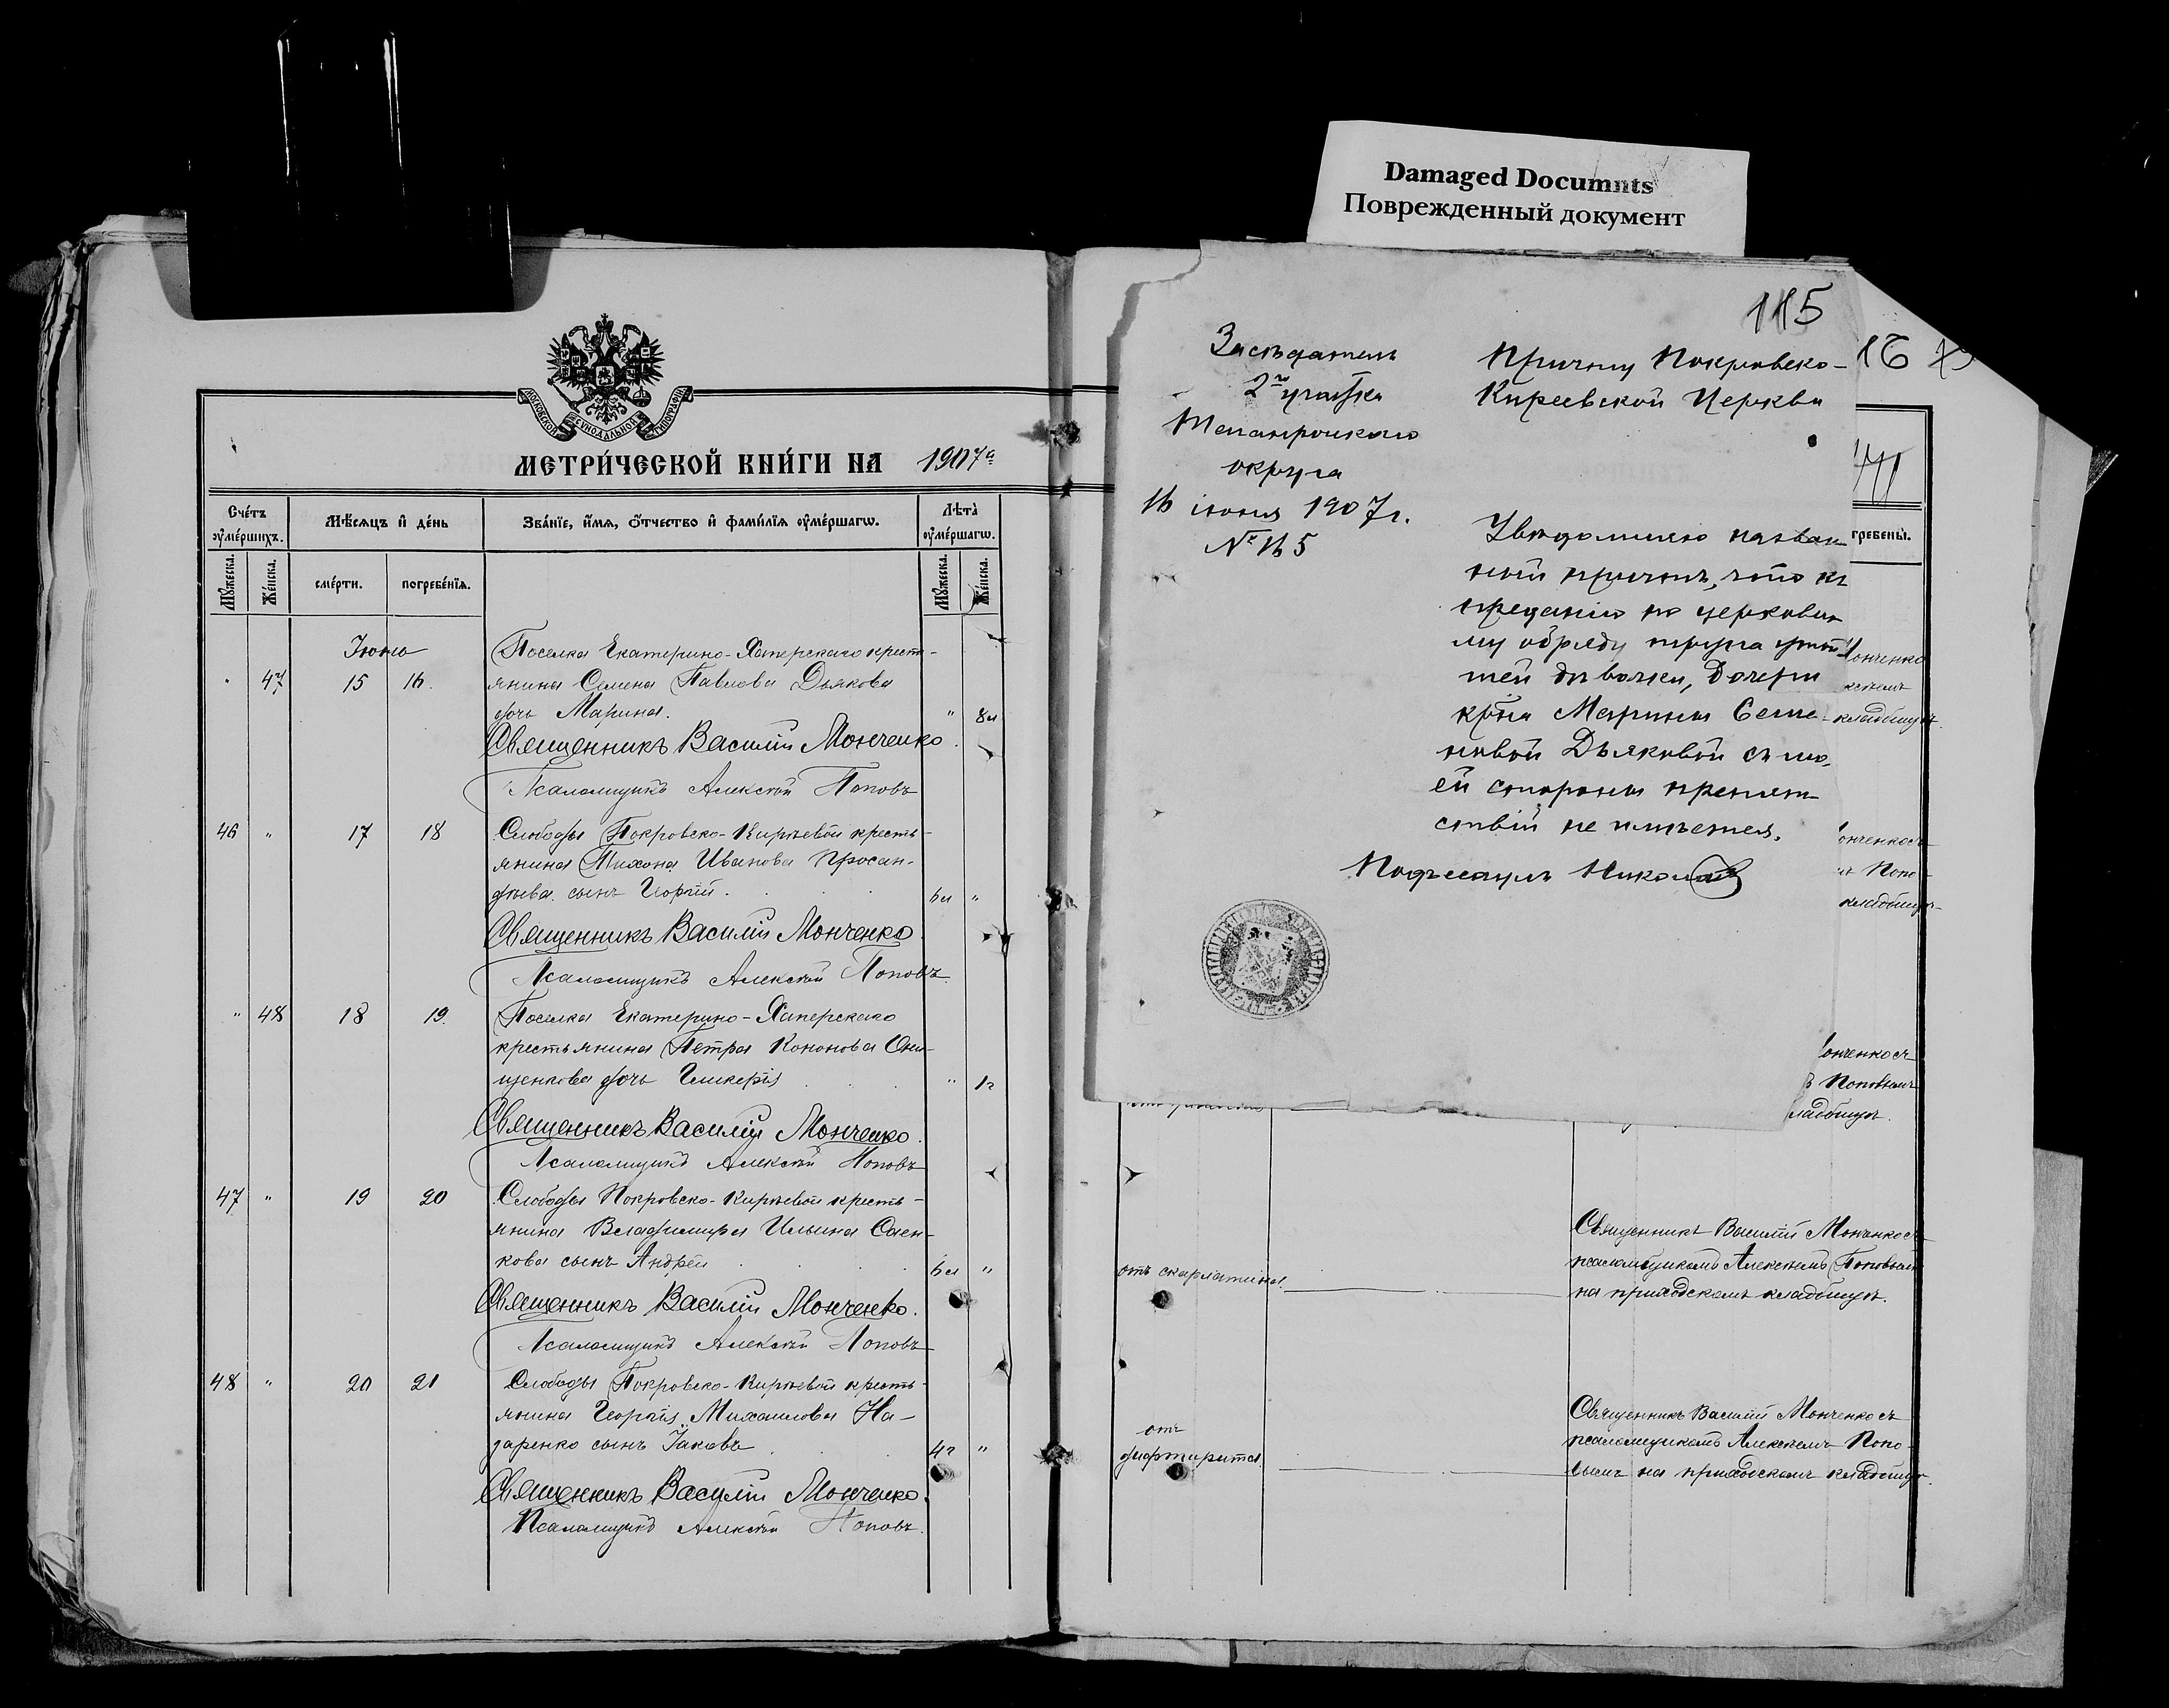 Damaged Documnts
Поврежденный документ
МОСКОВСКОЙ СѴНОДАЛЬНОЙ ТИПОГРАФІИ
МЕТРИ́ЧЕСКОЙ КНИ́ГИ НА 1907 г.
Сче́тъ ᲂу҆ме́ршихъ.
Мѣ́сяцъ и҆ де́нь
Зва́нїе, и҆́мя, ѻ҆́тчество и҆ фами́лїя ᲂу҆ме́ршагѡ.
Лѣта̀ ᲂу҆ме́ршагѡ.
Мꙋ́жеска.
Же́нска.
сме́рти.
погребе́нїя.
Мꙋ́жеска.
Же́нска.
Іюнь
Поселка Екатерино-Хаперскаго кресть-
" 47 15 16. янина Семена Павлова Дьякова
дочь Марина. " 8м
Священникъ Василій Монченко.
Псаломщикъ Алексѣй Поповъ
46 " 17 18 Слободы Покровско-Кирѣевой кресть-
янина Тихона Иванова Просан-
дѣева сынъ Георгій. 6м "
Священникъ Василій Монченко.
Псаломщикъ Алексѣй Поповъ.
" 48 18 19. Поселка Екатерино-Хаперскаго
крестьянина Петра Кононова Они-
щенкова дочь Гликерія " 1г
Священникъ Василій Монченко.
Псаломщикъ Алексѣй Поповъ
47 " 19 20 Слободы Покровско-Кирѣевой кресть-
янина Владимира Ильина Саен-
кова сынъ Андрей 6м "
Священникъ Василій Монченко.
Псаломщикъ Алексѣй Поповъ
48 " 20 21 Слободы Покровско-Кирѣевой кресть-
янина Георгія Михаилова На-
заренко сынъ Іаковъ 4г "
Священникъ Василій Монченко.
Псаломщикъ Алексѣй Поповъ.
115
Засѣдатель
2го участка
Таганрогскаго
округа
16 іюня 1907 г.
№ 165
Причту Покровско-
Киреевской Церкви
Увѣдомляю назван-
ный причтъ, что къ
преданію по церковно
му обряду трупа умер
шей дѣвочки, дочери
кр-на Марины Семе-
новой Дьяковой съ мо-
ей стороны препят-
ствій не имѣется.
Подъесаулъ Николаевъ
16
гребены̀.
онченко
кладбищѣ.
онченко съ
Попо-
кладбищѣ
онченко съ
Поповымъ
ладбищѣ.
отъ скарлатины.
Священникъ Василій Монченко съ
псаломщикомъ Алексѣемъ Поповымъ
на приходскомъ кладбищѣ.
отъ
дифтерита.
Священникъ Василій Монченко съ
псаломщикомъ Алексѣемъ Попо-
вымъ на приходскомъ кладбищѣ.